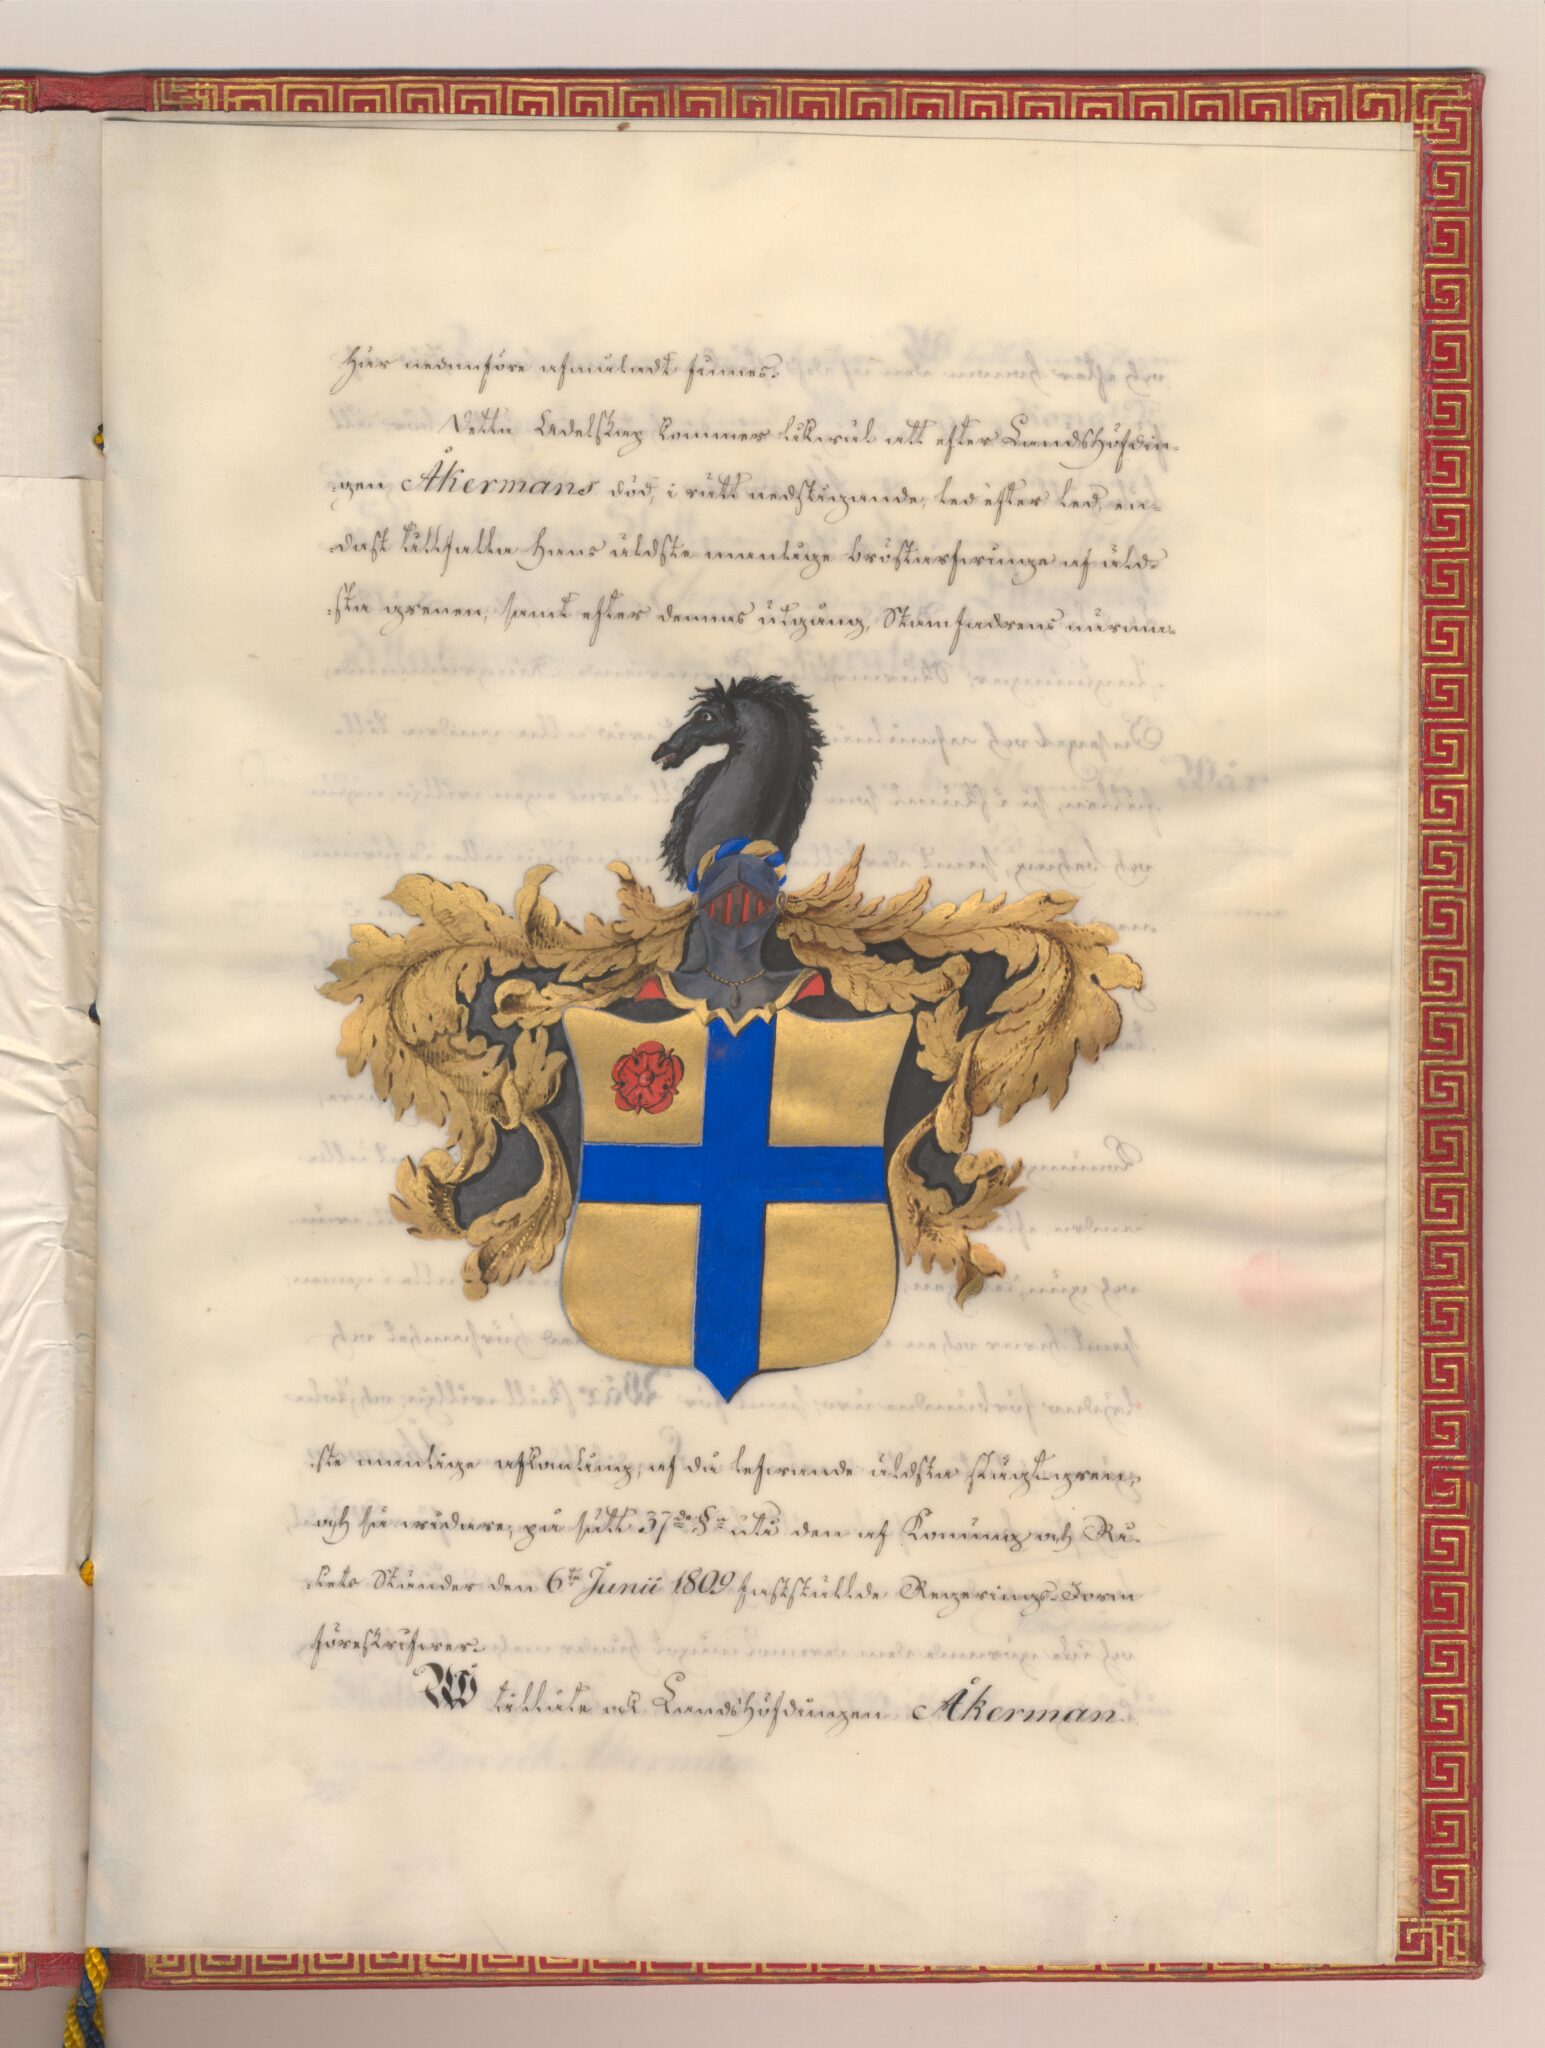 här nedanföre afmåladt finnes.
Detta Adelskap kommer likwäl att efter Landshöfdin-
gen Åkermans död, i rätt nedstigande led efter led, en-
dast tillfalla Hans äldste manlige bröstarfwinge af äld-
sta grenen, samt efter dennas utgång, Stamfadrens närma-
ste manlige afkomling, af då lefwande äldsta slägt-gren,
och så widare, på sätt 37de §n uti den af Konung och Ri-
kets Ständer den 6te Junii 1809 fastställde Regerings-Form
föreskrifwer.
Wi tillåte ock Landshöfdingen Åkerman